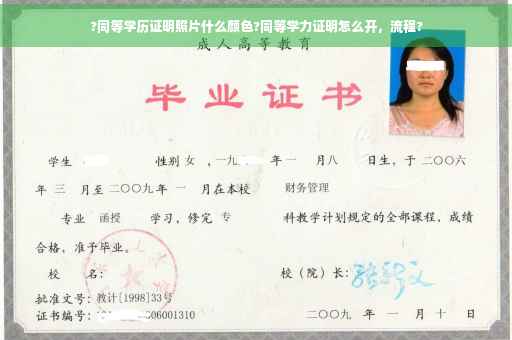 ?同等学历证明照片什么颜色?同等学力证明怎么开，流程?
成人高等教育
毕业证书
学生 性别 女 ，一九 年 一 月八 日生，于 二〇〇六
年 三 月至 二〇〇九 年 一 月在本校 财务管理
专业 函授 学习，修完 专 科教学计划规定的全部课程，成绩
合格，准予毕业。
校 名： 校（院）长：
批准文号：教计[1998]33号
证书编号： 6006001310 二〇〇九 年 一 月 十 日